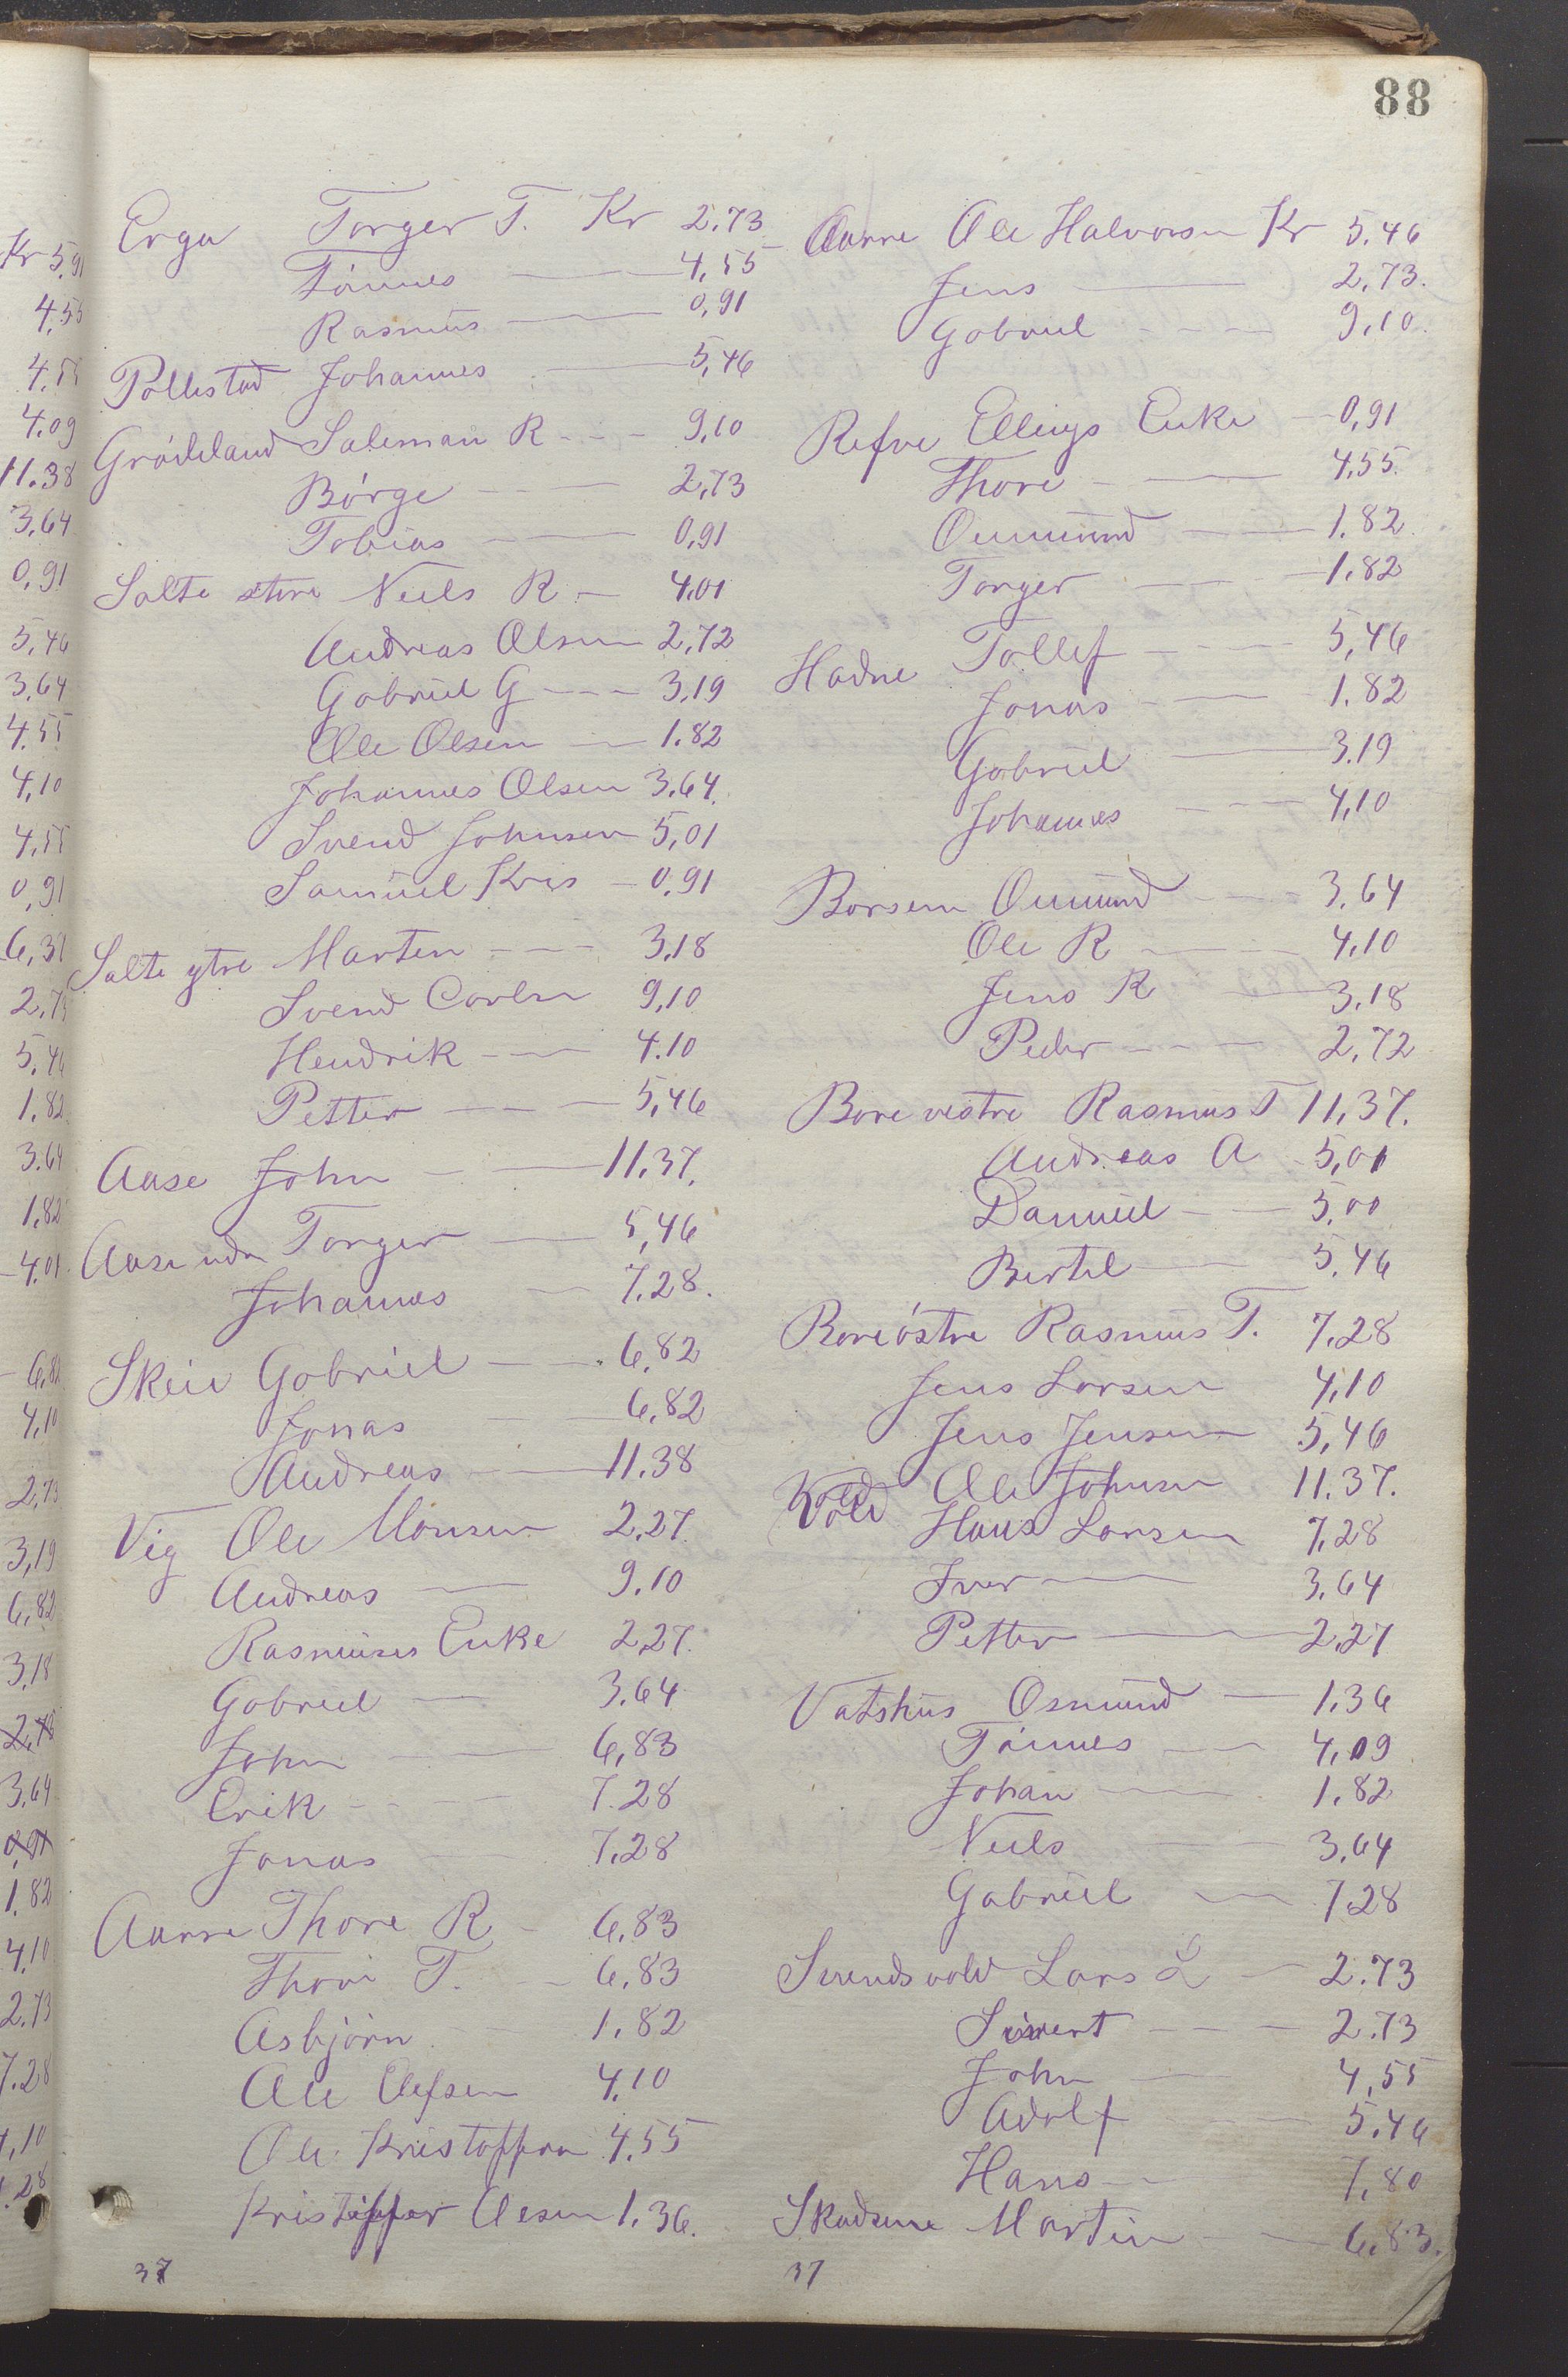 88
Kr 5,91
4,55
4,55
4,09
11.38
3,64
0,91
5,46
3,64
4,55
4,10
4,55
0,91
6,37
2,73
5,46
1,82
3.64
1,82
4.01
6,82
4,10
2,73
3,19
6,82
3,18
3,64
1,82
4,10
2.73
7.28
Erga Torger T. Kr 2,73
Tönnes 4,55
Rasmus 0,91
Pollestad Johannes 5,46
Grödeland Saleman R 9,10
Börge 2,73
Tobias 0,91
Salte store Neils R 4,01
Andreas Olsen 2,72
Gabriel G 3,19
Ole Olsen 1.82
Johannes Olsen 3,64.
Svend Johnsen 5,01
Samuel Kris 0,91
Salte ytre Marten 3,18
Svend Carlsn 9,10
Hendrik 4.10
Petter 5,46
Aase John 11,37.
Aase Torger 5,46
Johannes 7,28.
Skeie Gabriel 6,82
Jonas 6,82
Andreas 11.38
Vig Ole Monsen 2,27.
Andreas 9,10
Rasmuses Enke 2,27.
Gabriel 3.64
John 6,83
Erik 7.28
Jonas 7,28
Aarre Thore R 6,83
Thore T. 6,83
Asbjörn 1,82
Ole Olefsen 4,10
Ole Kristoffern 4,55
Kristoffer Olesen 1,36.
37
Aarre Ole Halvorsn Kr 5,46
Jens 2,73.
Gabriel 9,10.
Refve Ellings Enke 0,91
Thore 4,55.
Ommund 1.82
Torger 1,82
Hadne Tollef 5,46
Jonas 1.82
Gabriel 3.19
Johannes 4,10
Borsem Omund 3,64
Ole R 4,10
Jens R 3,18
Peder 2,72
Bore vestre Rasmus T 11,37.
Andreas A 5,01
Daniel 5,00
Bertel 5,46
Bore östre Rasmus T. 7,28
Jens Larsen 4,10
Jens Jensen 5,46
Vold Ole Johnsen 11.37.
Hans Larsen 7,28
Iver 3,64
Petter 2,27
Vatshus Osmund 1,36
Tönnes 4,09
Johan 1,82
Neils 3,64
Gabriel 7,28
Svendsvold Lars L 2.73
Sivert 2.73
John 4,55
Adolf 5,46
Hans 7,80
Skadsem Martin 6,83.
37